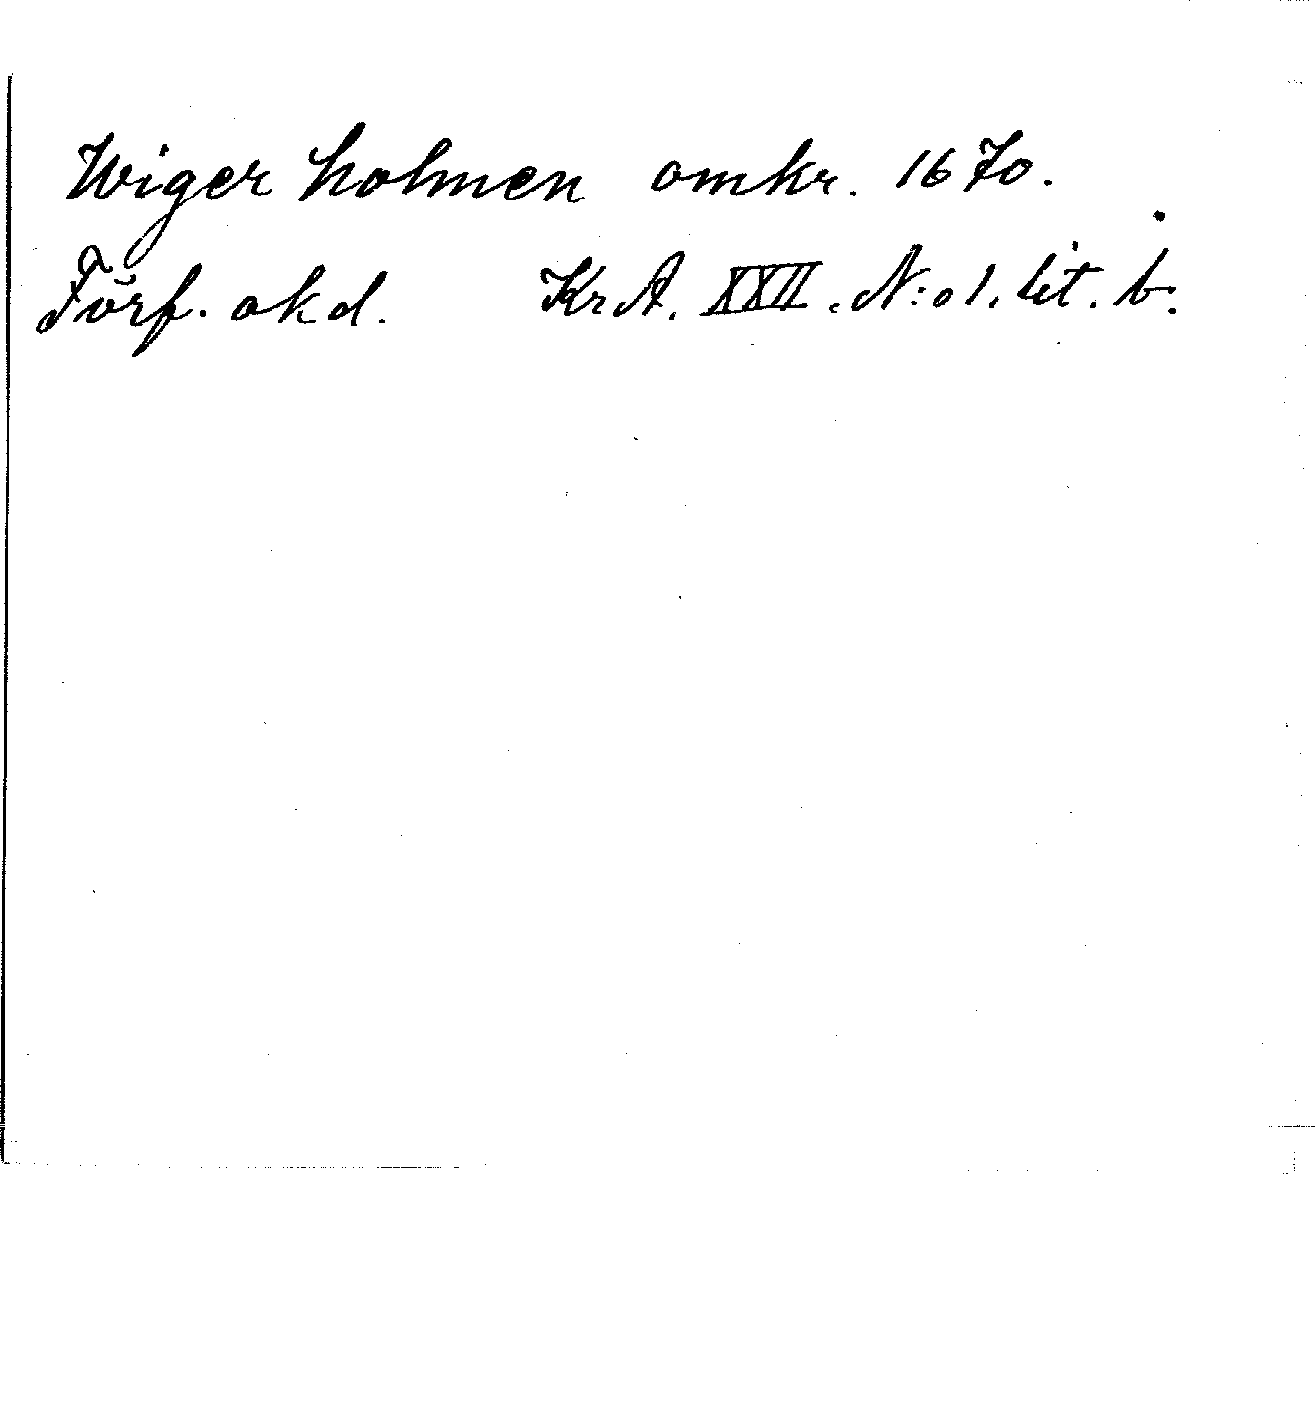 Wigerholmen omkr. 1670.
Förf. okd. Kr A. XXII. N:o 1. lit. b.